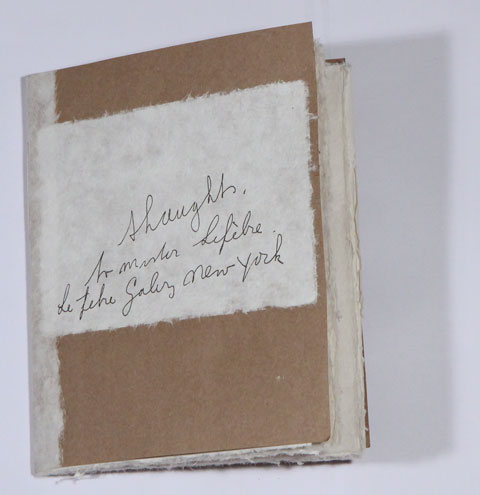 thoughts.
to mister Lefèbre.
Le Febre Galery New York